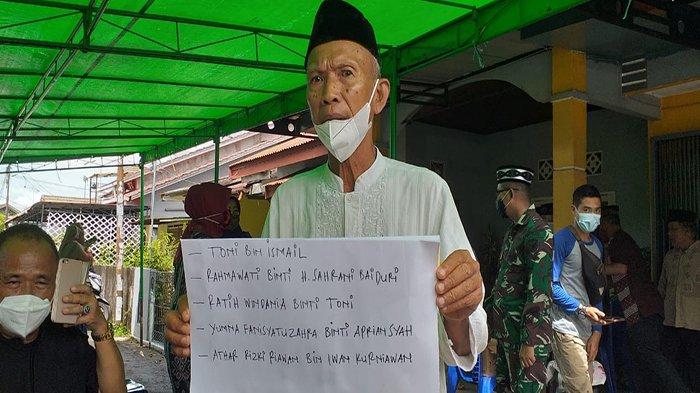 - TONI BIN ISMAIL
- RAHMAWATI BINTI H. SAHRANI BAIDURI
- RATIH WINDANIA BINTI TONI
- YUMNA FANISYATUZAHRA BINTI APRIANSYAH
- ATHAR RIZKI RIAWAN BIN IWAN KURNIAWAN